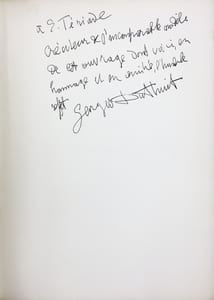 à E. Tériade
créateur de l'incomparable modèle
de cet ouvrage dont voici, en
hommage et en amitié, l'humble
Georges Duthuit